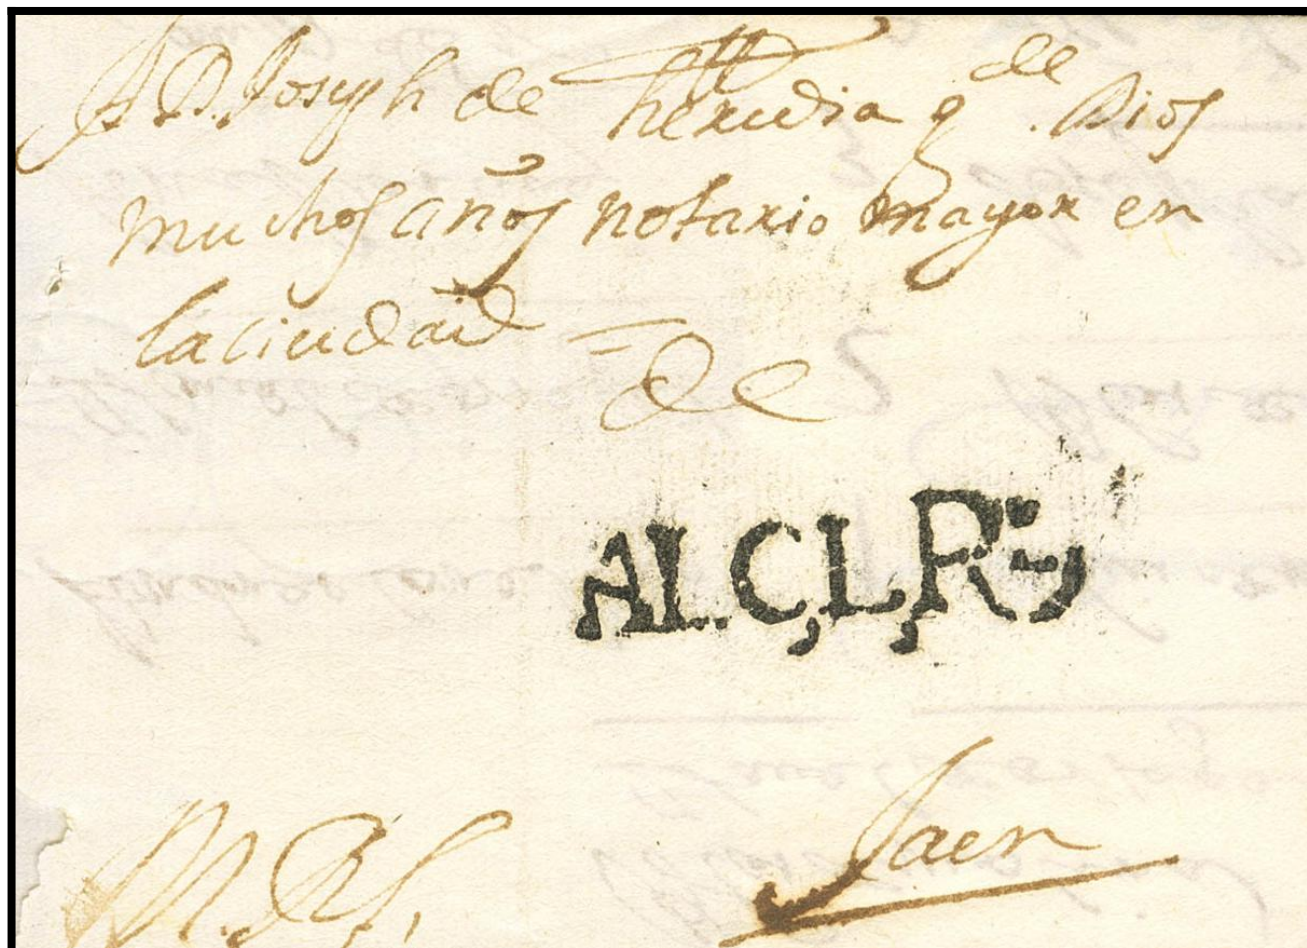 A D. Joseph de heredia q de Dios
muchos años notario mayor en
la ciudad =
de
AL.C,L,R
Jaen